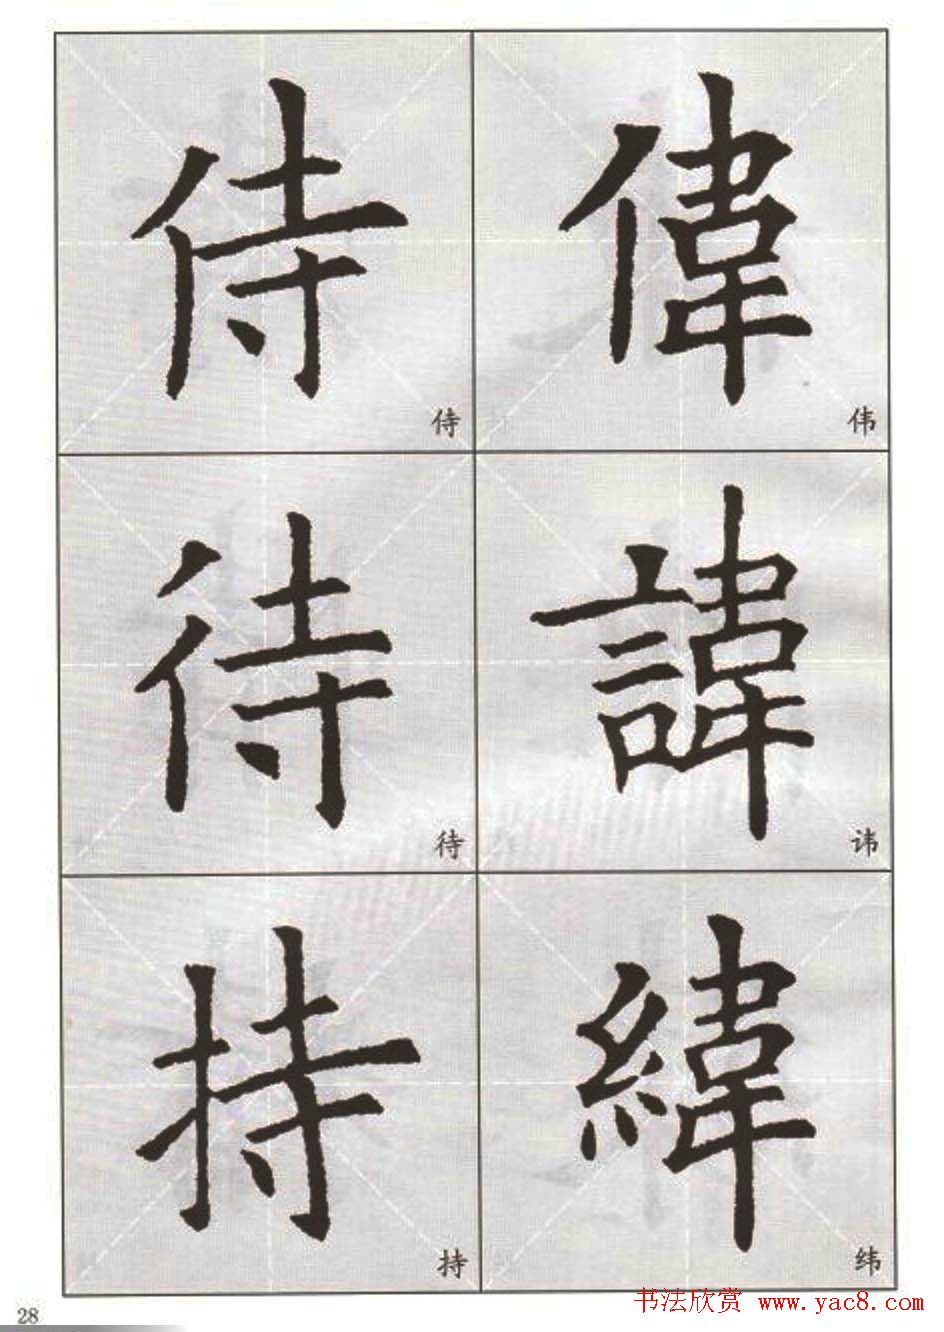 侍 偉
侍 伟
待 諱
待 讳
持 緯
持 纬
28
书法欣赏 www.yac8.com